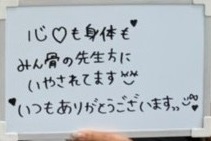 心♡も身体も♥
みん骨の先生方に
いやされてます
♥いつもありがとうございます。。